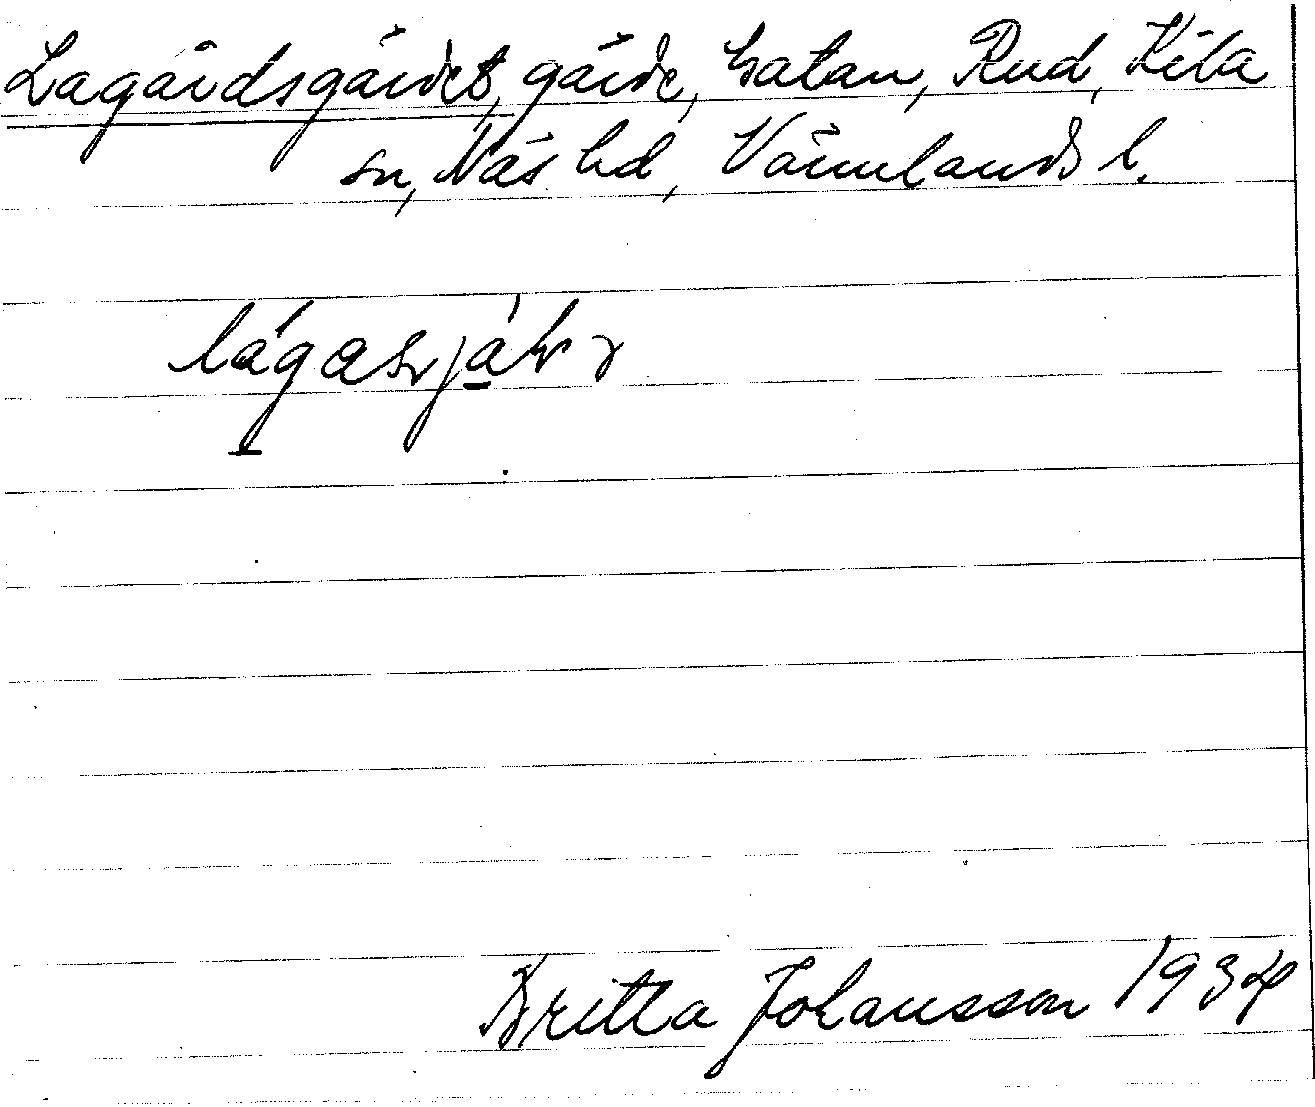 Lagårdsgärdet, gärde, Gatan, Rud, Kila
sn, Näs hd, Värmlands l.
Britta Johansson 1934